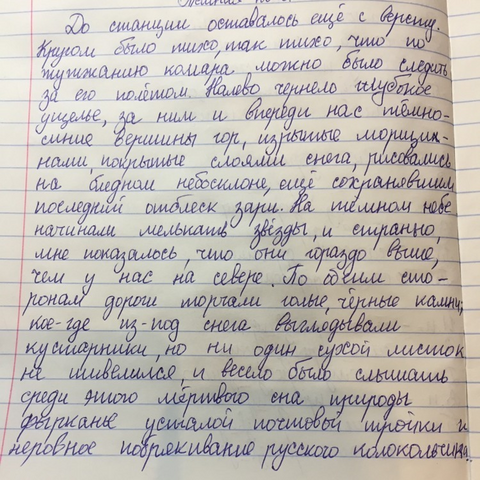 До станции оставалось ещё с версту.
Кругом было тихо, так тихо, что по
жужжанию комара можно было следить
за его полётом. Налево чернело глубокое
ущелье, за ним и впереди нас тёмно-
синие вершины гор, изрытые морщин-
нами, покрытые слоями снега, рисовались
на бледном небосклоне, ещё сохранявшим
последний отблеск зари. На тёмном небе
начинали мелькать звёзды, и странно,
мне показалось, что они гораздо выше,
чем у нас на севере. По обеим сто-
ронам дороги торчали голые, чёрные камни,
кое-где из-под снега выглядывали
кустарники, но ни один сухой листок
не шевелился, и весело было слышать
среди этого мёртвого сна природы
фырканье усталой почтовой тройки и
неровное побрякивание русского колокольчика.